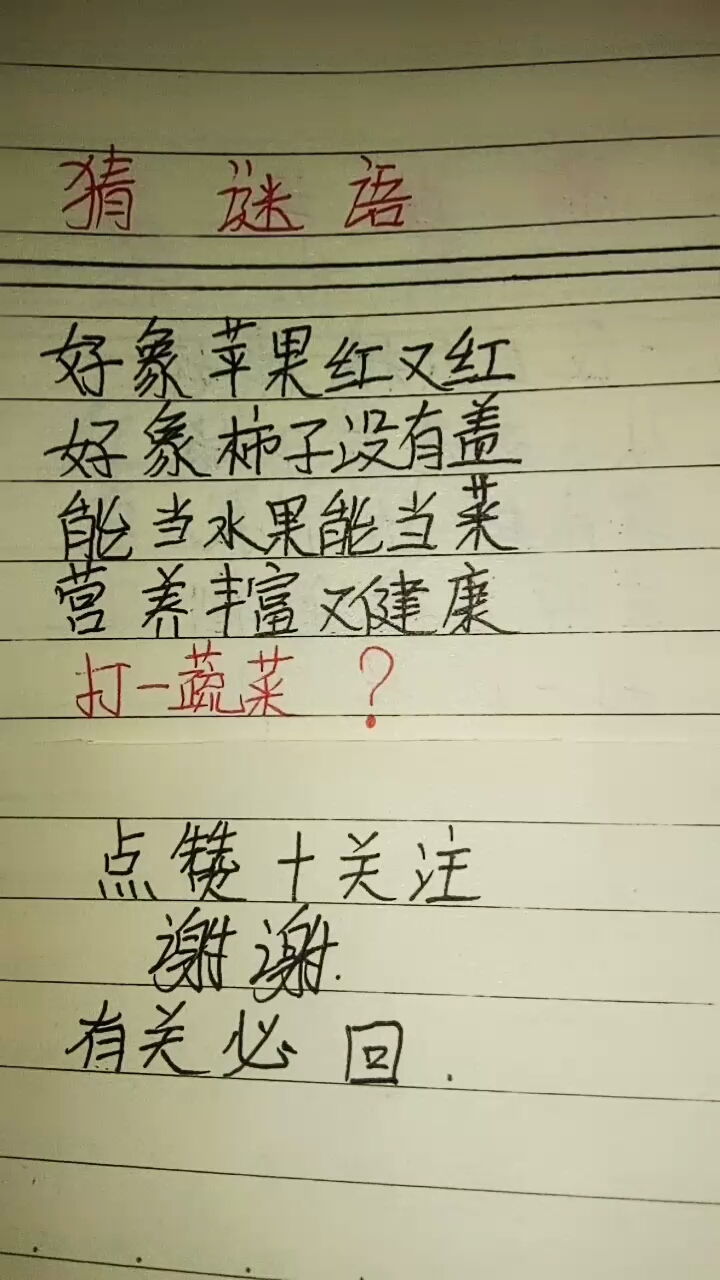 猜谜语
好象苹果红又红
好象柿子没有盖
能当水果能当菜
营养丰富又健康
打一蔬菜？
点赞+关注
谢谢.
有关必回.